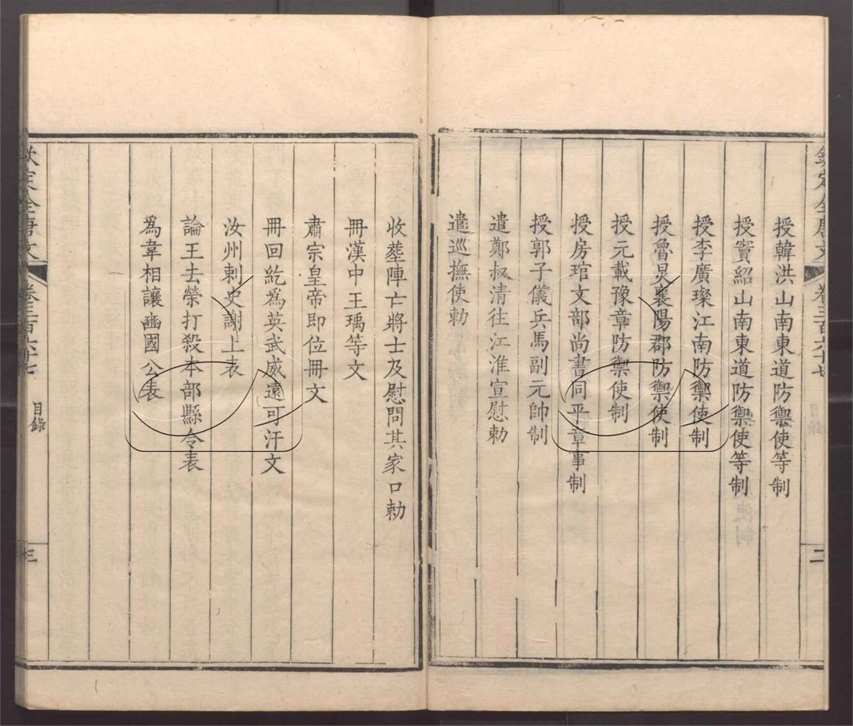 欽定全唐文 卷三百六十七 目錄 二
授韓洪山南東道防禦使等制
授竇紹山南東道防禦使等制
授李廣璨江南防禦使制
授魯炅襄陽郡防禦使制
授元載豫章防禦使制
授房琯文部尚書同平章事制
授郭子儀兵馬副元帥制
遣鄭叔清往江淮宣慰勅
遣巡撫使勅
收葬陣亡將士及慰問其家口勅
冊漢中王瑀等文
肅宗皇帝即位冊文
冊回紇為英武威遠可汗文
汝州刺史謝上表
論王去榮打殺本部縣令表
為韋相讓豳國公表
欽定全唐文 卷三百六十七 目錄 三